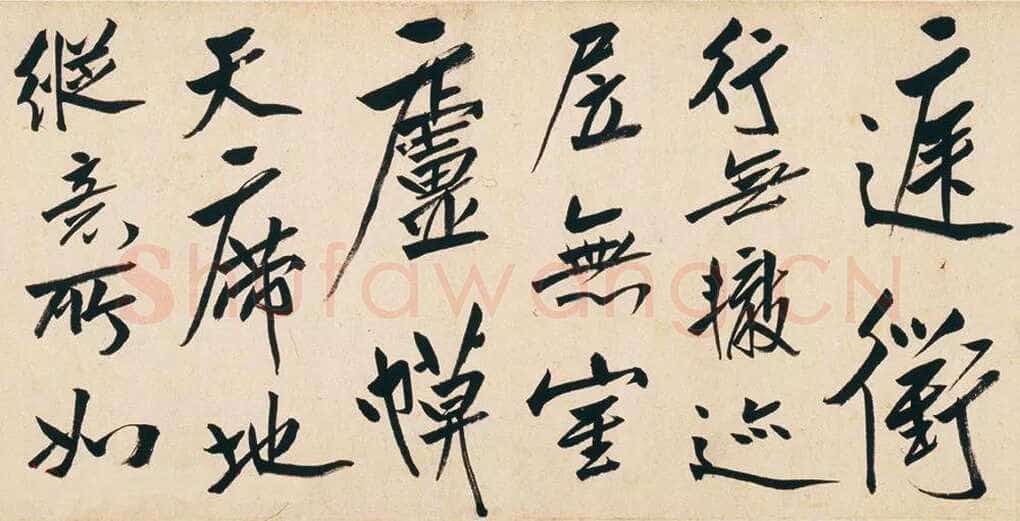 庭衢
行無轍迹
居無室
廬幙
天席地
縱意所如
Shufawang.CN